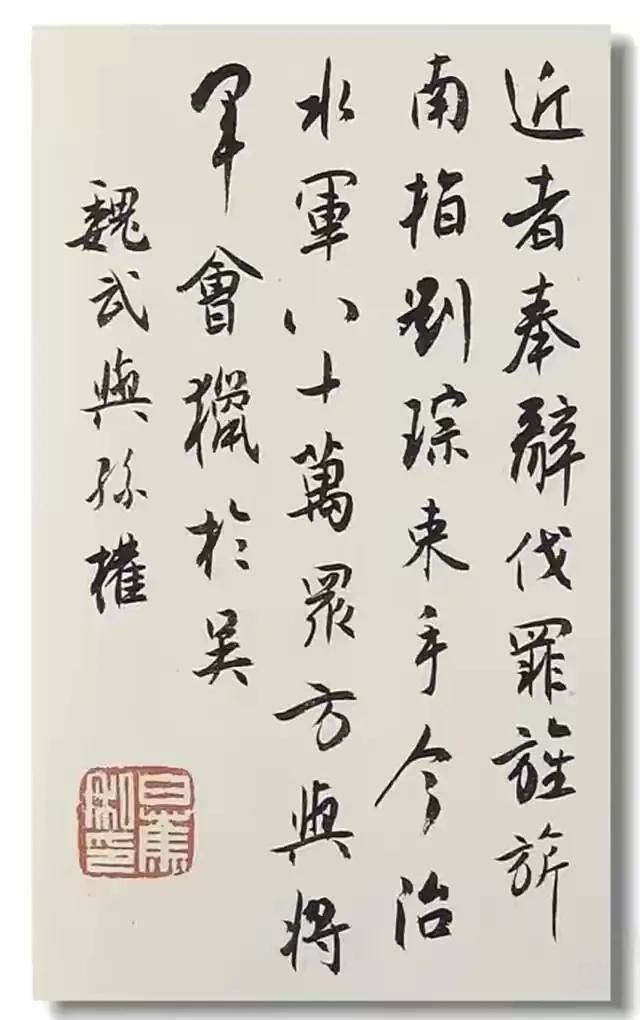 近者奉辭伐罪旌旂
南指劉琮束手今治
水軍八十萬眾方與将
軍會獵於吳
魏武與孫權
白蕉
私印